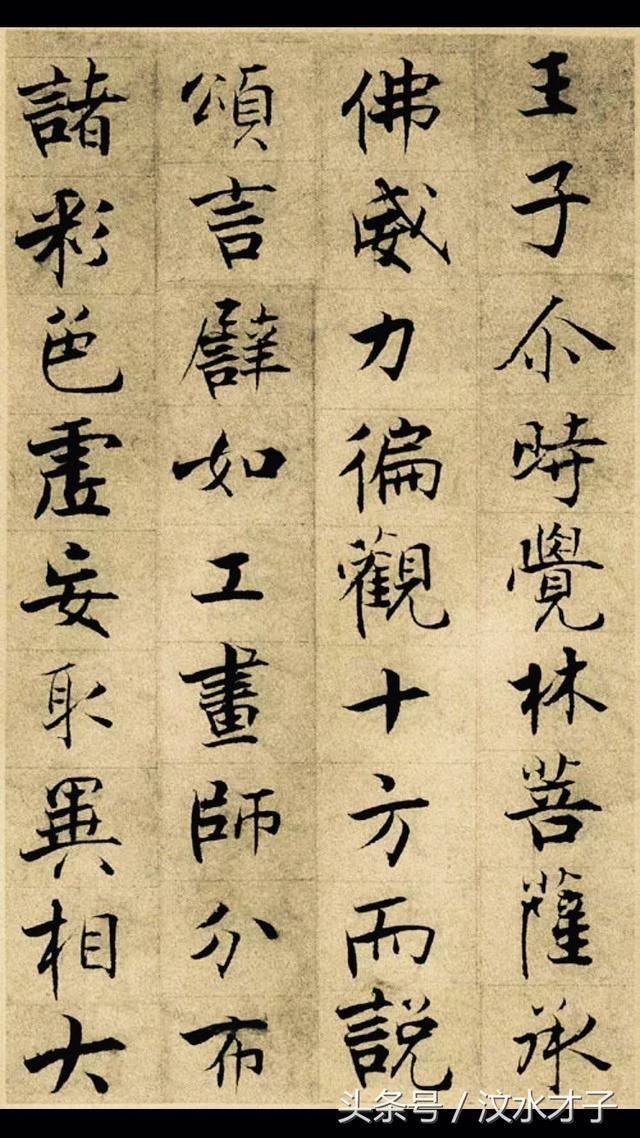 王子尒時覺林菩薩承
佛威力徧觀十方而說
頌言譬如工畫師分布
諸彩色虛妄取異相大
头条号 / 汶水才子